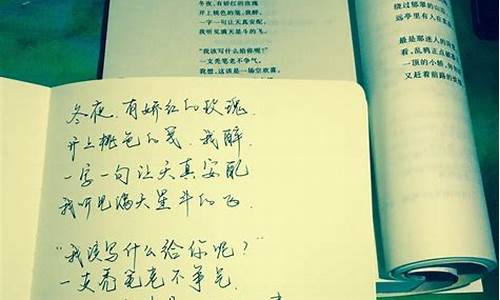 冬夜，有娇红的玫瑰
开上桃色的笺，我醉，
一字一句让天真安配，
我听见满天星斗的飞。
“我该写什么给你呢？”
一支秃笔老不争气，
我想，这该是一场空欢喜，
绕过郁翠的山
远亭里有人在太
最是那迷人的
看，乱鸦正点破
一顶的小轿，
又赶着前路的
冬夜，有娇红的玫瑰，
开上桃色的笺，我醉，
一字一句让天真安配
我听见满天星斗的飞。
“我该写什么给你呢？”
一支秃笔老不争气，